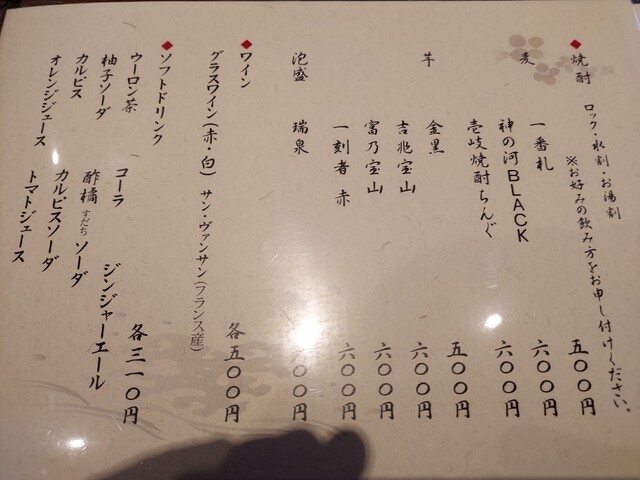 ◆焼酎
ロック・水割・お湯割
※お好みの飲み方をお申し付けください。
麦 一番札 五〇〇円
神の河BLACK 六〇〇円
壱岐焼酎ちんぐ 六〇〇円
芋 金黒 五〇〇円
吉兆宝山 六〇〇円
富乃宝山 六〇〇円
一刻者 赤 六〇〇円
泡盛 瑞泉 〇〇円
◆ワイン
グラスワイン(赤・白) サン・ヴァンサン(フランス産) 各五〇〇円
◆ソフトドリンク 各三一〇円
ウーロン茶 コーラ ジンジャーエール
柚子ソーダ 酢橘すだちソーダ
カルピス カルピスソーダ
オレンジジュース トマトジュース